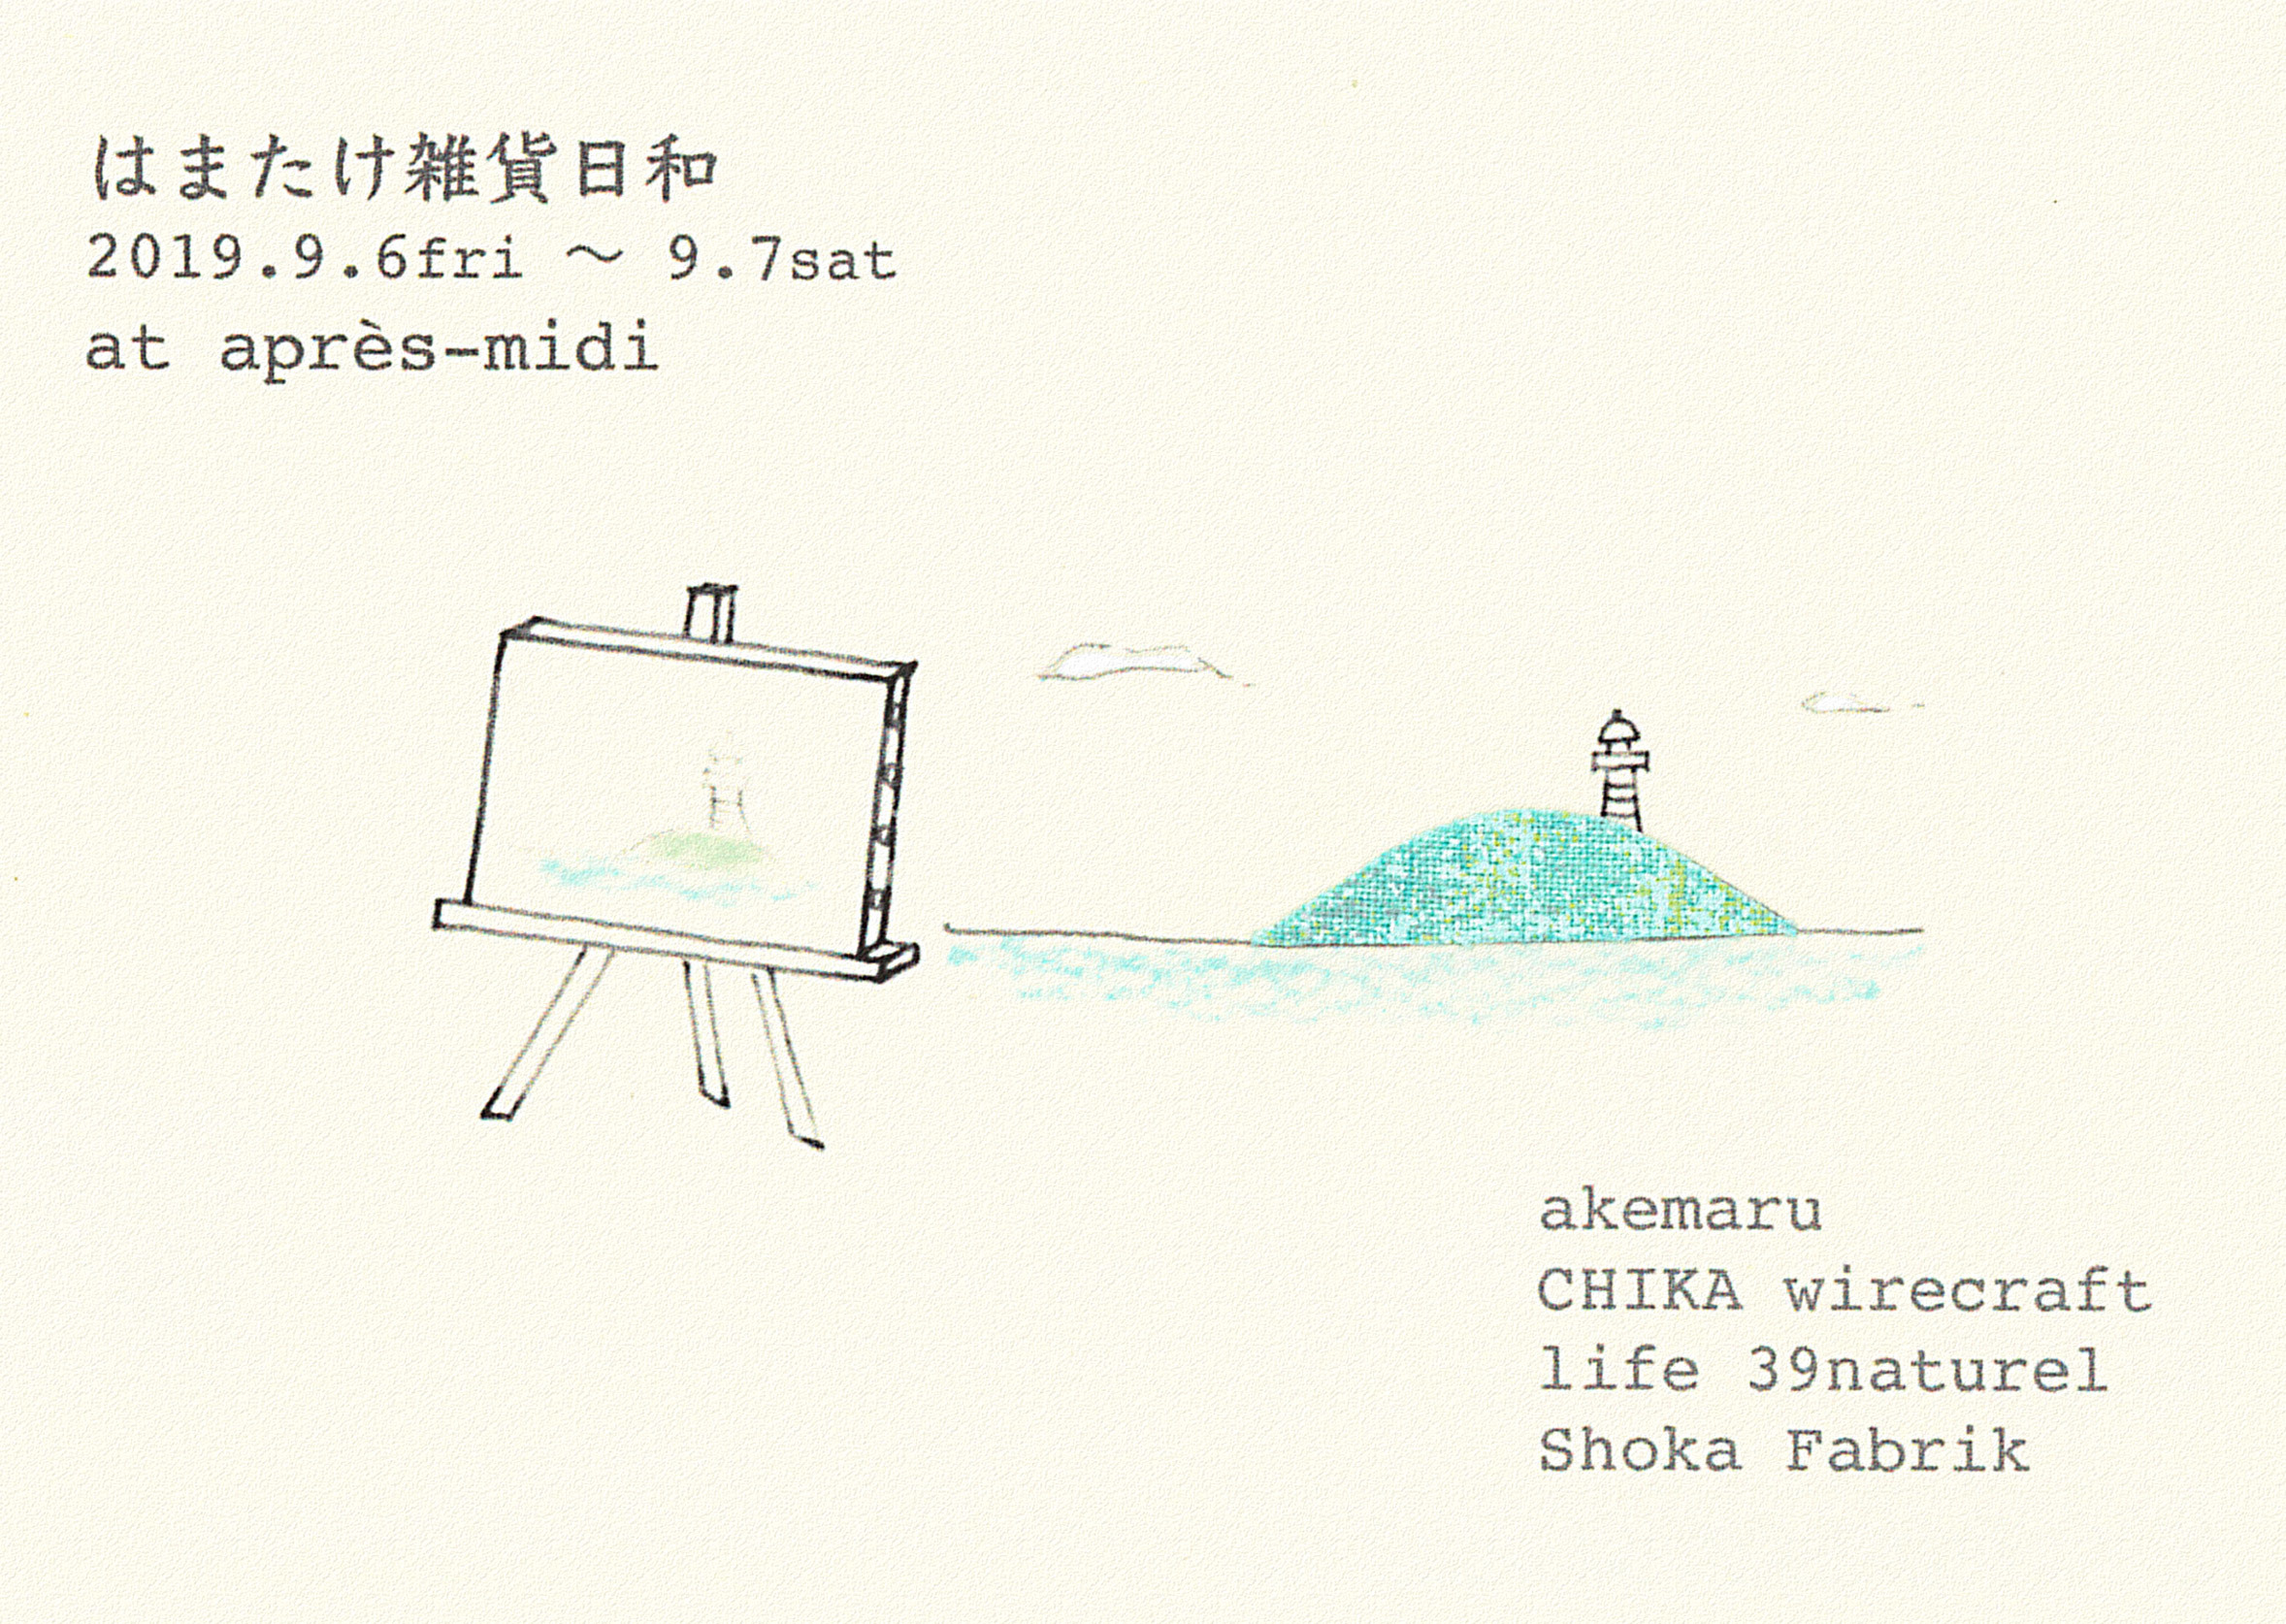 はまたけ雑貨日和
2019.9.6fri ～ 9.7sat
at après-midi
akemaru
CHIKA wirecraft
life 39naturel
Shoka Fabrik